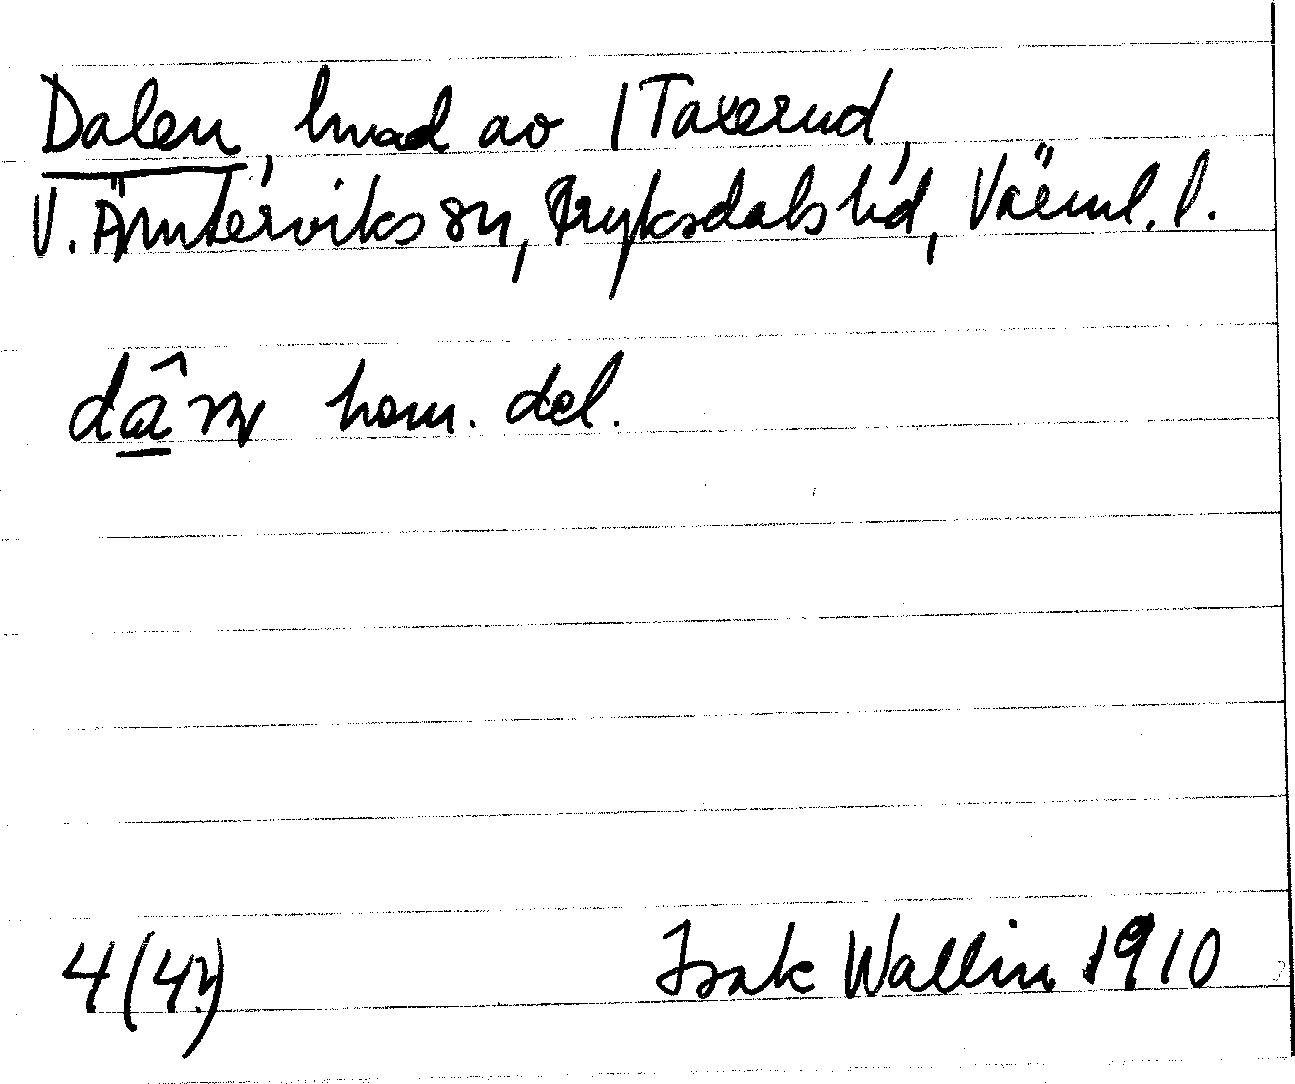 Dalen, hmd av 1 Taxerud,
V. Ämterviks sn, Fryksdals hd, Värml. l.
hem. del.
Isak Wallin 1910